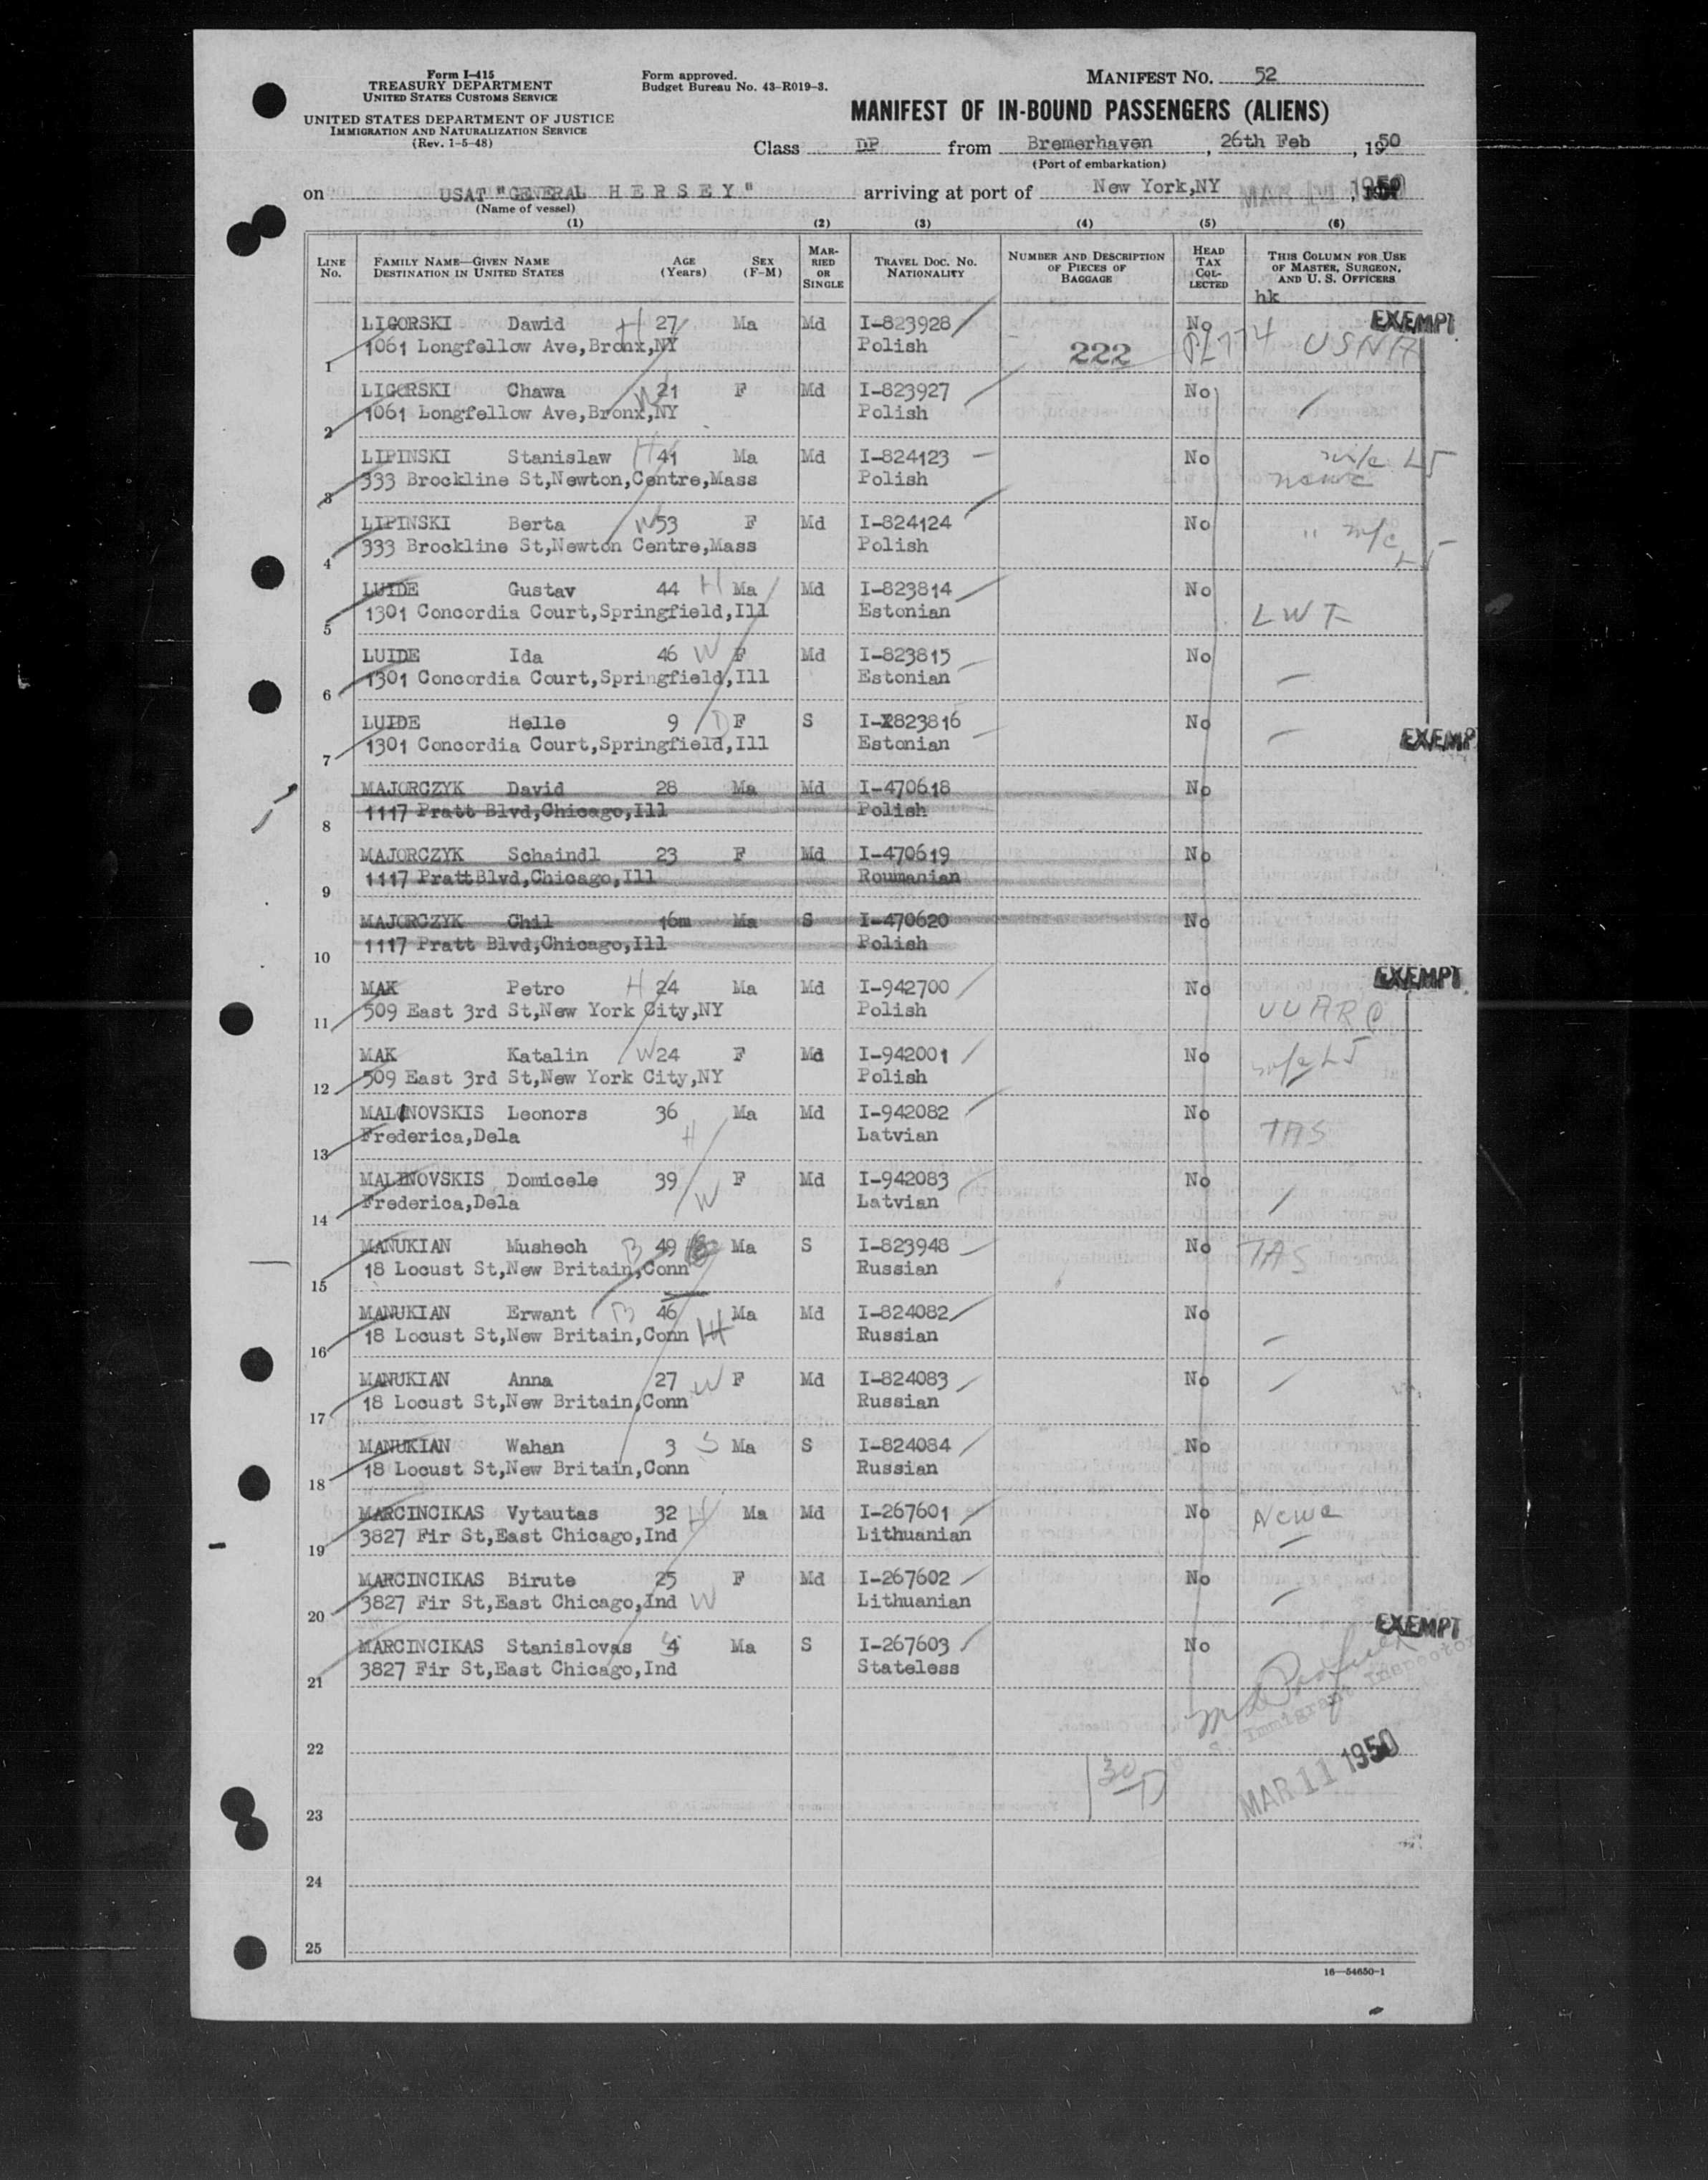 Form I-415
TREASURY DEPARTMENT
UNITED STATES CUSTOMS SERVICE
UNITED STATES DEPARTMENT OF JUSTICE
IMMIGRATION AND NATURALIZATION SERVICE
(Rev. 1-5-48)
Form approved.
Budget Bureau No. 43-R019-3.
MANIFEST NO. 52
MANIFEST OF IN-BOUND PASSENGERS (ALIENS)
Class DP from Bremerhaven, 26th Feb, 1950
(Port of embarkation)
on USAT "GENERAL HERSEY" arriving at port of New York,NY MAR 11 1950
(Name of vessel)
(1) (2) (3) (4) (5) (6)
LINE No. FAMILY NAME—GIVEN NAME DESTINATION IN UNITED STATES AGE (Years) SEX (F-M) MARRIED OR SINGLE TRAVEL DOC. NO. NATIONALITY NUMBER AND DESCRIPTION OF PIECES OF BAGGAGE HEAD TAX COLLECTED THIS COLUMN FOR USE OF MASTER, SURGEON, AND U. S. OFFICERS
hk
LIGORSKI Dawid H 27 Ma Md I-823928 No EXEMPT
1 1061 Longfellow Ave,Bronx,NY Polish 222 PL774 USNA
LIGORSKI Chawa W 21 F Md I-823927 No
2 1061 Longfellow Ave,Bronx,NY Polish
LIPINSKI Stanislaw H 41 Ma Md I-824123 No
3 333 Brockline St,Newton,Centre,Mass Polish
LIPINSKI Berta W 53 F Md I-824124 No
4 333 Brockline St,Newton Centre,Mass Polish
LUIDE Gustav 44 H Ma Md I-823814 No
5 1301 Concordia Court,Springfield,Ill Estonian LWF
LUIDE Ida 46 W F Md I-823815 No
6 1301 Concordia Court,Springfield,Ill Estonian
LUIDE Helle 9 D F S I-823816 No
7 1301 Concordia Court,Springfield,Ill Estonian EXEMP
MAJORCZYK David 28 Ma Md I-470618 No
8 1117 Pratt Blvd,Chicago,Ill Polish
MAJORCZYK Schaindl 23 F Md I-470619 No
9 1117 PrattBlvd,Chicago,Ill Roumanian
MAJORCZYK Chil 16m Ma S I-470620 No
10 1117 Pratt Blvd,Chicago,Ill Polish
MAK Petro H 24 Ma Md I-942700 No EXEMPT
11 509 East 3rd St,New York City,NY Polish UUARC
MAK Katalin W 24 F Md I-942001 No
12 509 East 3rd St,New York City,NY Polish
MALINOVSKIS Leonors 36 Ma Md I-942082 No
13 Frederica,Dela H Latvian TAS
MALINOVSKIS Domicele 39 F Md I-942083 No
14 Frederica,Dela W Latvian
MANUKIAN Mushech B 49 Ma S I-823948 No TAS
15 18 Locust St,New Britain,Conn Russian
MANUKIAN Erwant B 46 Ma Md I-824082 No
16 18 Locust St,New Britain,Conn H Russian
MANUKIAN Anna 27 W F Md I-824083 No
17 18 Locust St,New Britain,Conn Russian
MANUKIAN Wahan 3 S Ma S I-824084 No
18 18 Locust St,New Britain,Conn Russian
MARCINCIKAS Vytautas 32 H Ma Md I-267601 No
19 3827 Fir St,East Chicago,Ind Lithuanian
MARCINCIKAS Birute 25 F Md I-267602 No
20 3827 Fir St,East Chicago,Ind W Lithuanian
EXEMPT
MARCINCIKAS Stanislovas 4 Ma S I-267603 No
21 3827 Fir St,East Chicago,Ind Stateless
Immigrant Inspector
22
MAR 11 1950
23
24
25
16—54650-1